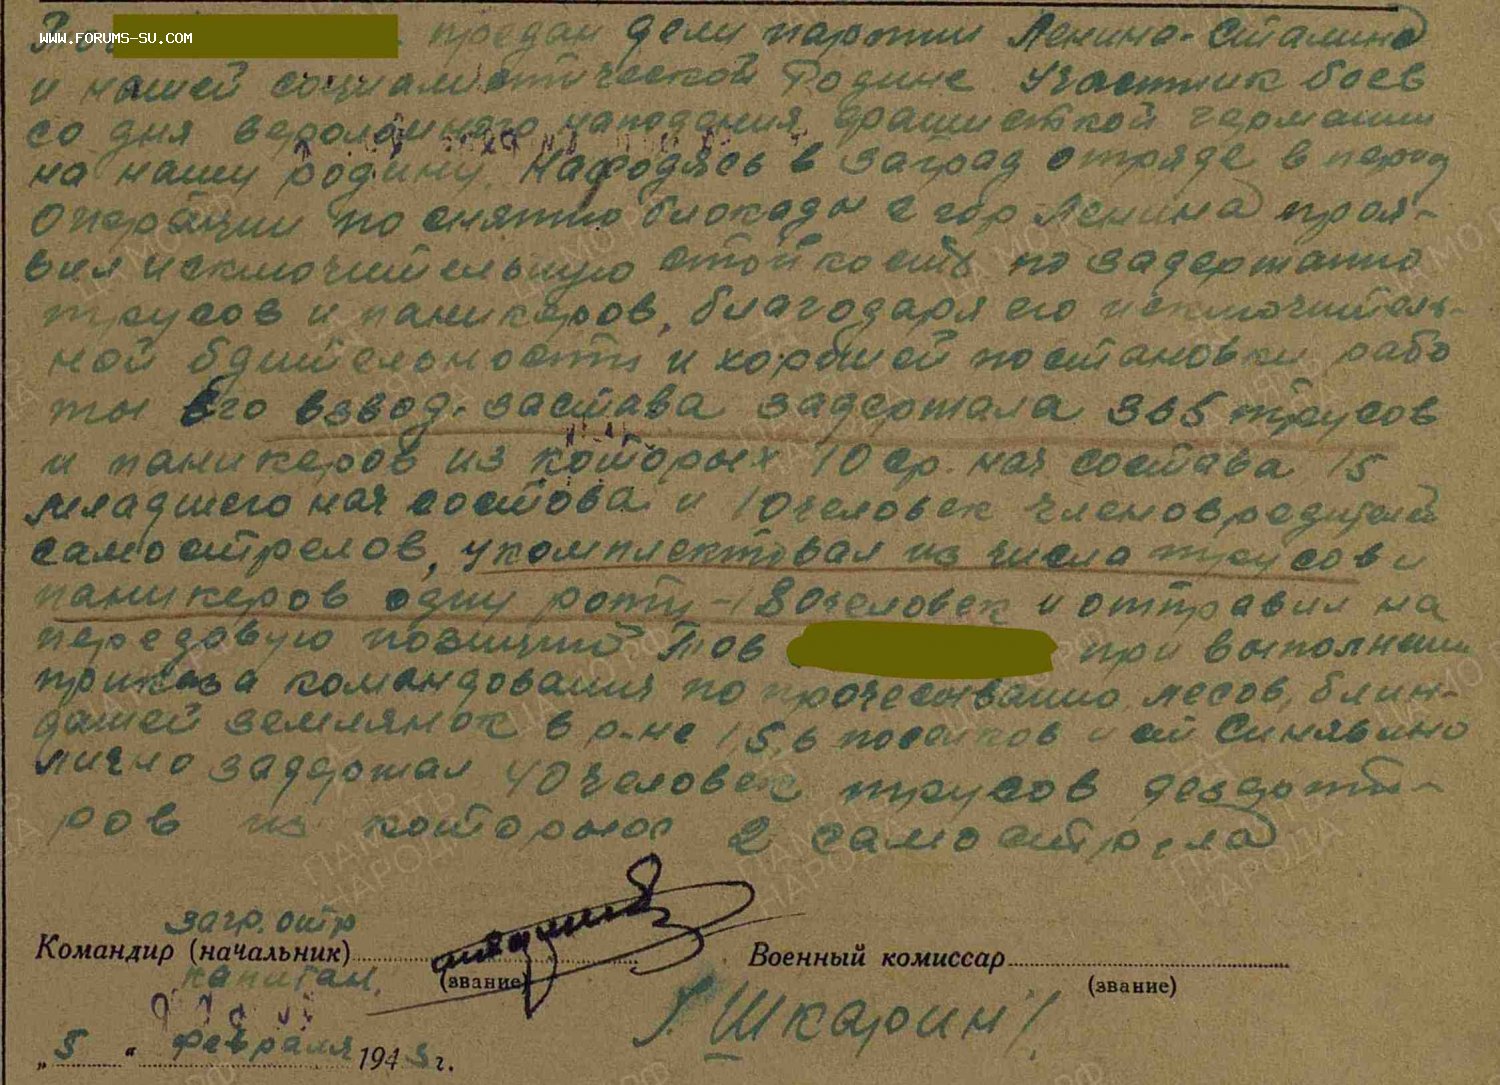 WWW.FORUMS-SU.COM
предан делу партии Ленина-Сталина
и нашей социалистической Родине. Участник боев
со дня вероломного нападения фашисткой германии
на нашу родину. Находясь в заград отряде в период
Операции по снятию блокады с гор Ленина проя-
вил исключительную стойкость по задержанию
трусов и паникеров, благодаря его исключитель-
ной бдительности и хорошей постановки рабо
ты его взвод. застава задержала 365 трусов
и паникеров из которых 10 ср. нач состава 15
младшего нач состава и 10 человек членовредителей
самострелов, укомплектовал из числа трусов и
паникеров одну роту - 180 человек и отправил на
передовую позицию. Тов при выполнении
приказа командования по прочесыванию лесов, блин-
дашей землянок в р-не 1, 5, 6 поселков и ст Синявино
лично задержал 40 человек трусов дезерти-
ров из которых 2 самострела
загр. отр
Командир (начальник)
капитан.
(звание)
Военный комиссар
(звание)
/Шкарин/
„5“ февраля 1943 г.
ПАМЯТЬ НАРОДА
ЦАМО РФ